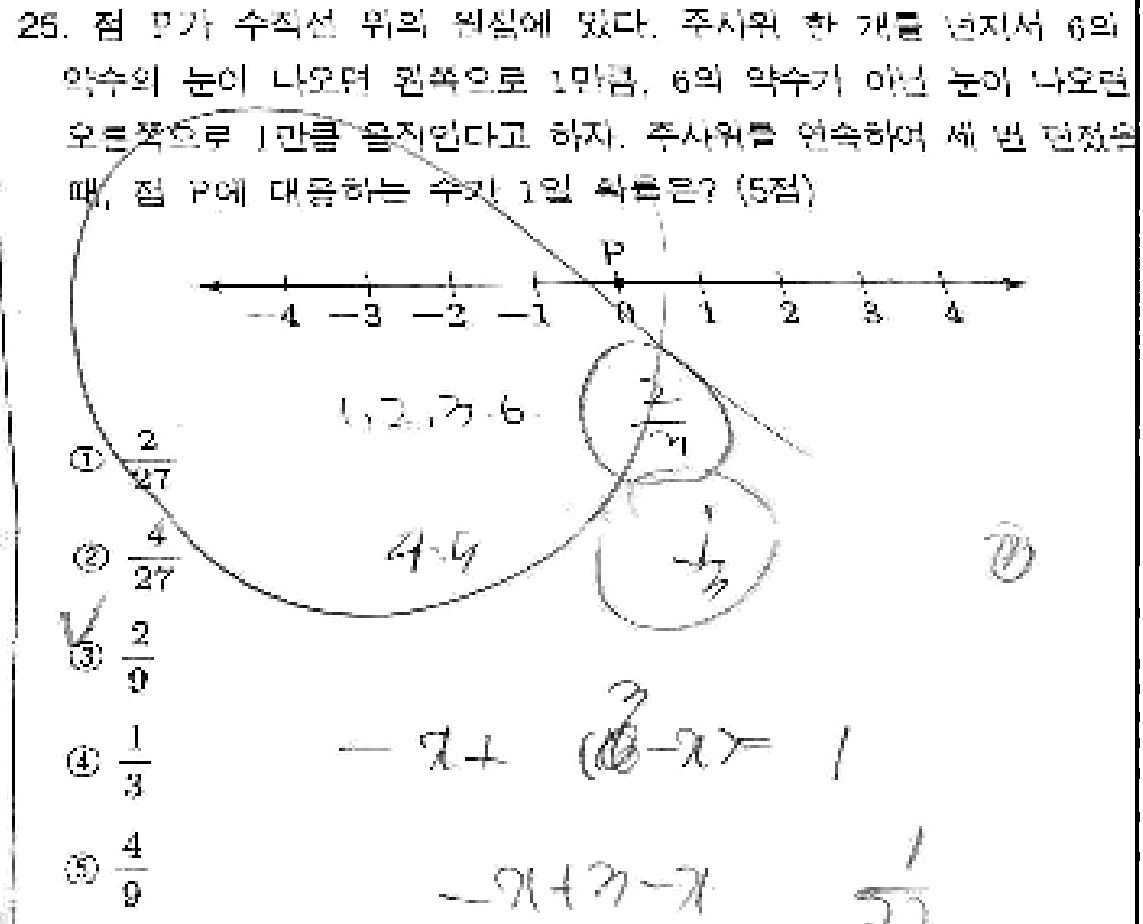 25. 점 P가 수직선 위의 원점에 있다. 주사위 한 개를 던져서 6의
약수의 눈이 나오면 왼쪽으로 1만큼, 6의 약수가 아닌 눈이 나오면
오른쪽으로 1만큼 움직인다고 하자. 주사위를 연속하여 세 번 던졌을
때, 점 P에 대응하는 수가 1일 확률은? (5점)
P
-4 -3 -2 -1 0 1 2 3 4
1, 2, 3, 6
2/3
① 2/27
② 4/27
4, 5
1/3
③ 2/9
④ 1/3
-x + (3-x) = 1
⑤ 4/9
-x+3-x